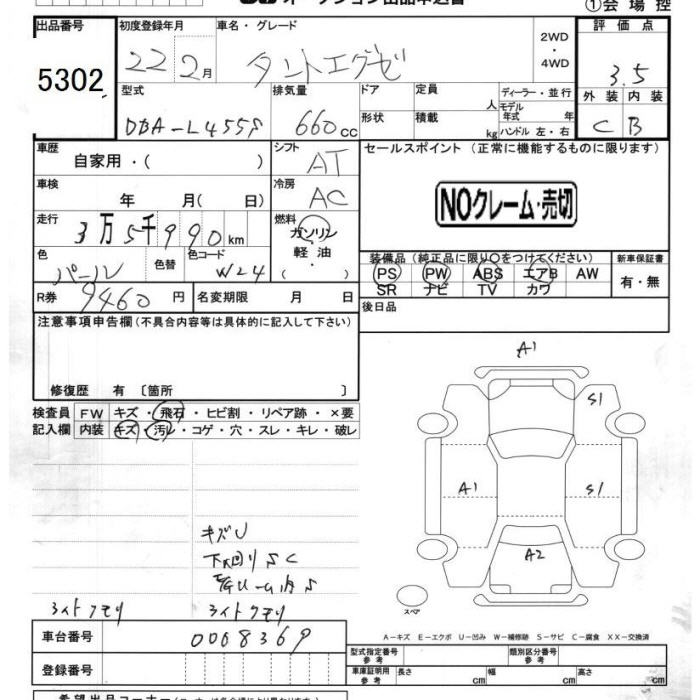 オークション出品申込書
①会場控
出品番号 初度登録年月 車名・グレード 評価点
5302 22 2月 タントエグゼ 2WD・4WD 3.5
型式 排気量 ドア 定員 人 ディーラー・並行 外装 内装
DBA-L455S 660cc 形状 積載 kg モデル年式 年 ハンドル 左・右 C B
車歴 自家用・( ) シフト AT セールスポイント(正常に機能するものに限ります)
車検 年 月( 日) 冷房 AC NOクレーム・売切
走行 3万5千990km 燃料 ガソリン 軽油 ( ・ )
色 パール 色替 色コード W24
装備品(純正品に限り○をつけてください) 新車保証書
PS PW ABS エアB AW 有・無
SR ナビ TV カワ
R券 9460円 名変期限 月 日 後日品
注意事項申告欄(不具合内容等は具体的に記入して下さい)
修復歴 有〔箇所 〕
検査員 FW キズ・飛石・ヒビ割・リペア跡・×要
記入欄 内装 キズ・汚レ・コゲ・穴・スレ・キレ・破レ
A1
S1
A1
S1
A2
スペア
キズU
下回りSC
ライトクモリ ライトクモリ
A-キズ E-エクボ U-凹み W-補修跡 S-サビ C-腐食 XX-交換済
車台番号 0008369 型式指定番号 参考 類別区分番号 参考
登録番号 車庫証明用 参考 長さ cm 幅 cm 高さ cm